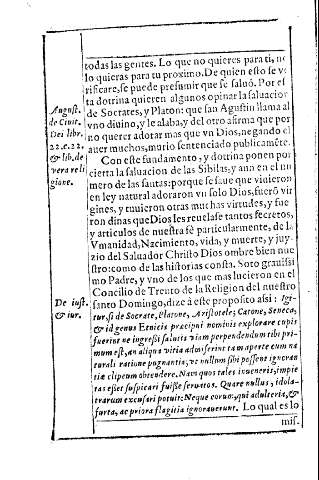 todas las gentes. Lo que no quieres para ti, no
lo quieras para tu proximo. De quien esto se ve
rificare, se puede presumir que se saluò. Por es
ta dotrina quieren algunos opinar la saluacion
de Socrates, y Platon: que san Agustin llama al
vno diuino, y le alaba, y del otro afirma que por
no querer adotar mas que vn Dios, negando el
auer muchos, murio sentenciado publicamẽte.
Con este fundamento, y dotrina ponen por
cierta la saluacion de las Sibilas, y aun en el nu
mero de las santas: porque se saue que viuieron
en ley natural adoraron vn solo Dios, fuerõ vir
gines, y tuuieron otras muchas virtudes, y fue
ron dinas que Dios les reuelase tantos secretos,
y articulos de nuestra fè particularmente, de la
Vmanidad, Nzcimiento, vida, y muerte, y juy-
zio del Saluador Christo Dios ombre bien nue
stro: como de las historias consta. Soto grauissi
mo Padre, y vno de los que mas lucieron en el
Concilio de Trento de la Religion del nuestro
santo Domingo, dize à este proposito assi: Igi-
tur, si de Socrate, Platone, Aristotele, Catone, Seneca,
& id genus Etnicis præcipui nominis explorare cupis
fuerint ne ingressi salutis viam perpendendum tibi pri-
mum est, an aliqua vitia admiserint tam aperte cum na
turali ratione pugnantia, vt nullum sibi possent ignoran
tiæ clipeum obtendere. Nam quos tales inueneris, impie
tas esset suspicari fuisse seruatos. Quare nullus, idola-
trarum excusari potuit: Neque eorum, qui adulteria, &
furta, ac priora flagitia ignorauerunt. Lo qual es lo
mis-
August.
de Ciuit.
Dei libr.
22. c. 22,
& lib. de
vera reli
gione.
De iust.
& iur.